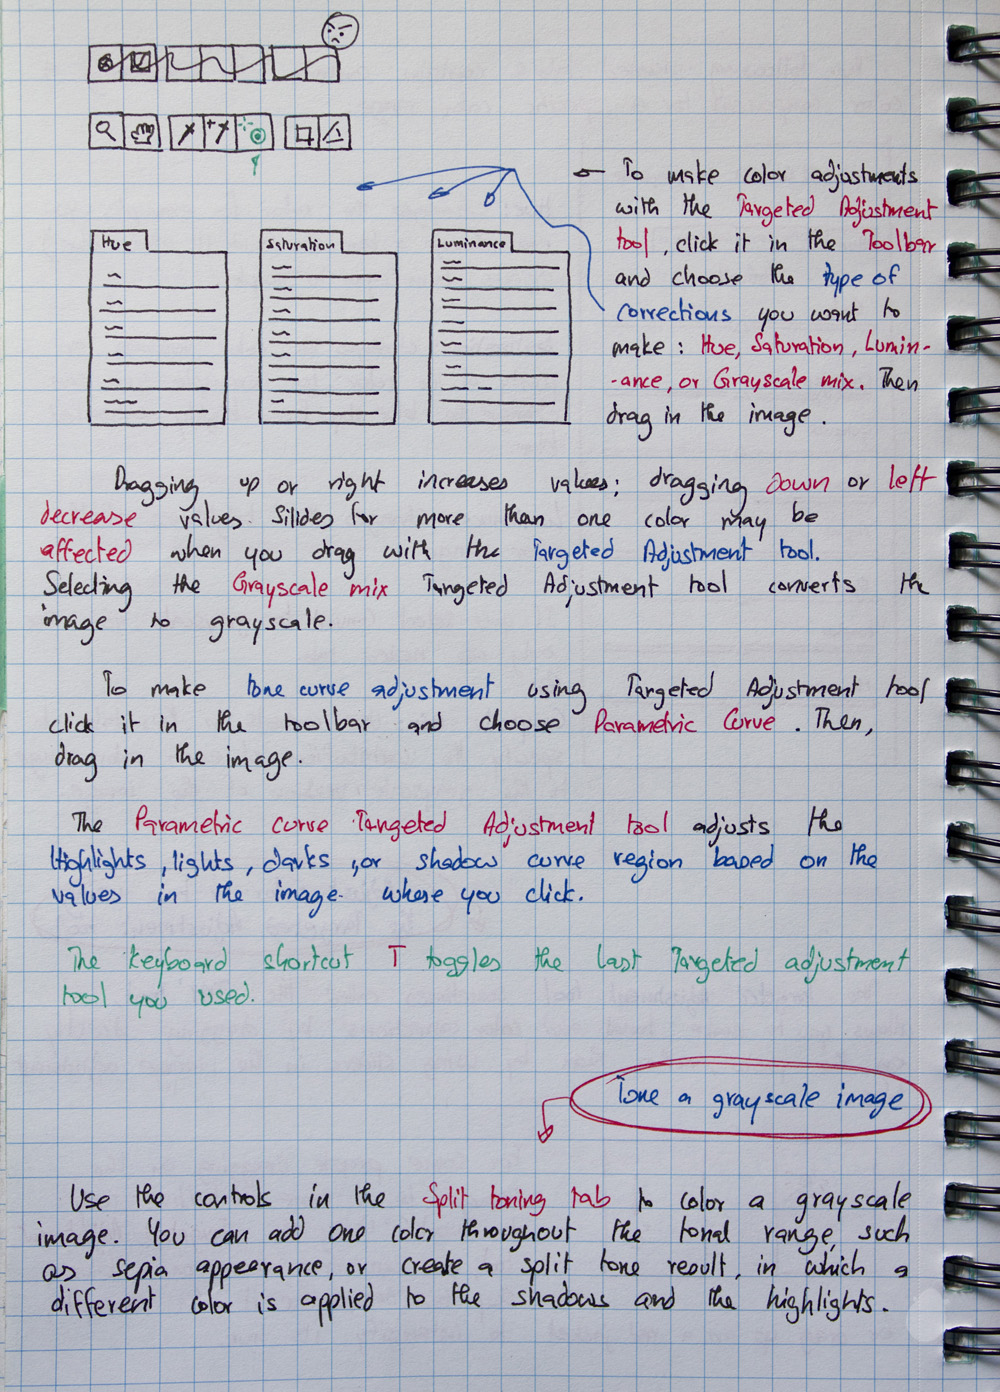 Hue
Saturation
Luminance
To make color adjustments
with the Targeted Adjustment
tool, click it in the Toolbar
and choose the type of
corrections you want to
make : Hue, Saturation, Lumin-
-ance, or Grayscale mix. Then
drag in the image.
Dragging up or right increases values; dragging down or left
decrease values. Silides for more than one color may be
affected when you drag with the Targeted Adjustment tool.
Selecting the Grayscale mix Targeted Adjustment tool converts the
image to grayscale.
To make tone curve adjustment using Targeted Adjustment tool
click it in the toolbar and choose Parametric Curve. Then,
drag in the image.
The Parametric curve Targeted Adjustment tool adjusts the
Highlights, lights, darks, or shadow curve region based on the
values in the image where you click.
The keyboard shortcut T toggles the last Targeted adjustment
tool you used.
Tone a grayscale image
Use the controls in the Split toning tab to color a grayscale
image. You can add one color throughout the tonal range, such
as sepia appearance, or create a split tone result, in which a
different color is applied to the shadows and the highlights.